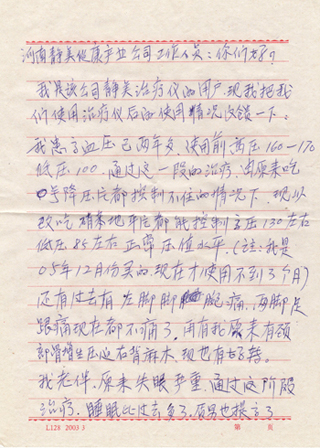 河南静美健康产业公司工作人员：你们好？
我是该公司静美治疗仪的用户，现我把我
们使用治疗仪后的使用情况汶谈一下。
我患高血压已两年多，使用前高压160—170
低压100。通过这一段的治疗，由原来吃
0号降压片都控制不住的情况下，现以
改吃硝苯地平片都能控制高压130左右
低压85左右正常压值水平。（注：我是
05年12月份买的，现在才使用不到3个月）
还有过去有左脚脚腕痛，两脚足
跟痛现在都不痛了，再有我原来有颈
部骨增生压迫右背麻木，现也有好转。
我老伴，原来失眠严重，通过这阶段
治疗，睡眠比过去多了，质量也提高了
L128 2003J 第 页